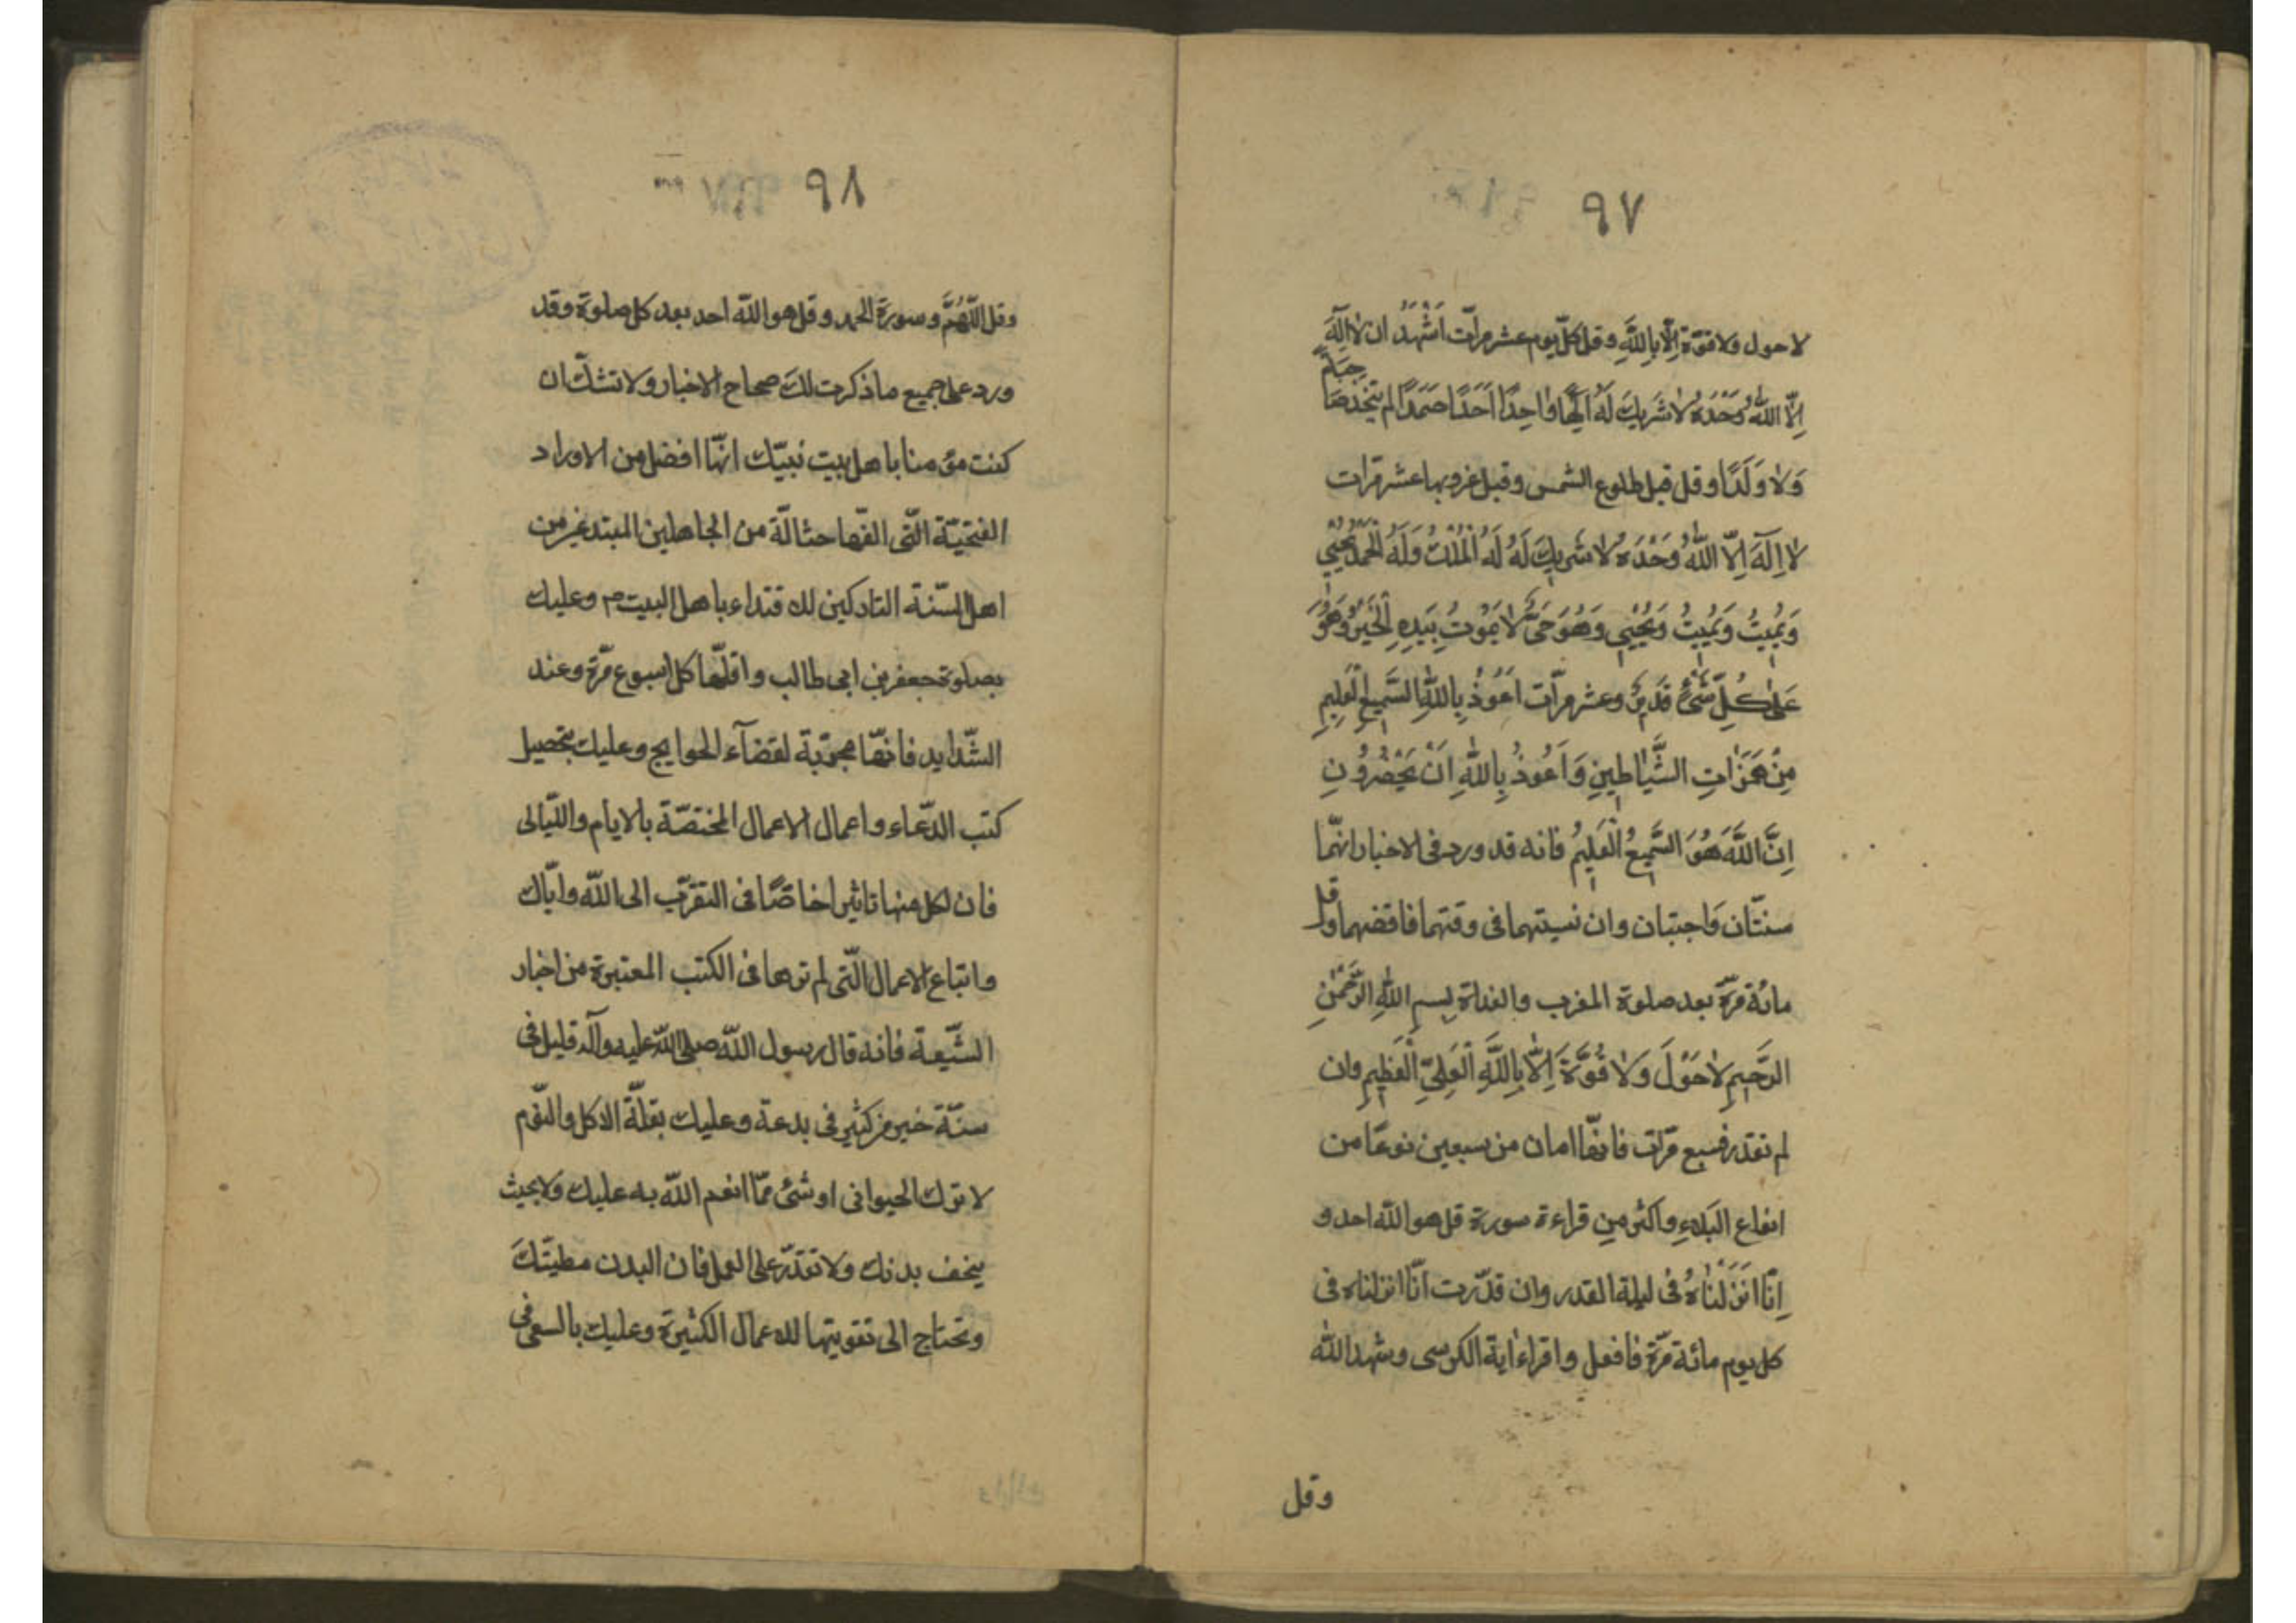 ٩٧
لا حول ولا قوّة اِلّا بِاللّهِ وقل كلّ يوم عشر مرّات اَشْهَدُ ان لا اِلٰهَ
اِلّا اللّهُ وَحْدَهُ لا شَريكَ لَهُ اِلٰهًا واحِدًا اَحَدًا صَمَدًا لم يتّخذ صَاحِبَةً
وَلا وَلَدًا وقل قبل طلوع الشمس وقبل غروبها عشر مرّات
لا اِلٰهَ اِلّا اللّهُ وَحْدَهُ لا شَريكَ لَهُ لَهُ الْمُلْكُ وَلَهُ الْحَمْدُ يُحْيي
وَيُميتُ وَيُميتُ وَيُحْيي وَهُوَ حَىٌّ لا يَمُوتُ بِيَدِهِ الْخَيْرُ وَهُوَ
عَلى كُلِّ شَىْءٍ قَديرٌ وعشر مرّات اَعُوذُ بِاللّهِ السَّميعِ الْعَليمِ
مِنْ هَمَزاتِ الشَّياطينِ وَاَعُوذُ بِاللّهِ اَنْ يَحْضُرُونِ
اِنَّ اللّهَ هُوَ السَّميعُ الْعَليمُ فانه قد ورد فى الاخبار انّهما
سنتّان وَاجبتان وان نسيتهما فى وقتهما فاقضهما وقل
مائة مرّة بعد صلوة المغرب والغداة بِسمِ اللّهِ الرَّحْمٰنِ
الرَّحيمِ لا حَوْلَ وَلا قُوَّةَ اِلّا بِاللّهِ الْعَلِيِّ الْعَظيمِ وان
لم تقدر فسبع مرّات فانّها امان من سبعين نوعًا من
انواع البَلاءِ واكثر مِن قراءة سورة قل هو اللّه احد و
اِنّا اَنْزَلْناهُ فى ليلة القدر وان قدّرت انّا انزلناه فى
كل يوم مائة مرّة فافعل واقراء اية الكرسى وشهد اللّه
وقل
٩٨
وقل اللّهُمَّ وسورة الحمد وقل هو اللّه احد بعد كل صلوة وقد
ورد على جميع ما ذكرت لك صحاح الاخبار ولا تشكّ ان
كنت مؤمنا باهل بيت نبيّك انّها افضل من الاوراد
الفتحيّة الّتى الّفها حثالة من الجاهلين المبتدعين من
اهل السّنة التاركين للاقتداء باهل البيت م وعليك
بصلوة جعفر بن ابى طالب واقلّها كل اسبوع مرّة وعند
الشّدايد فانّها مجرّبة لقضآء الحوايج وعليك بتحصيل
كتب الدّعاء واعمال الاعمال المختصّة بالايام واللّيالى
فان لكل منها تاثيرا خاصًّا فى التقرّب الى اللّه وايّاك
واتباع الاعمال الّتى لم ترها فى الكتب المعتبرة من اخبار
الشّيعة فانه قال رسول اللّه صلى اللّه عليه وآله قليل فى
سنّة خير من كثير فى بدعة وعليك بقلّة الاكل والنّوم
لا ترك الحيوانى او شئ ممّا انعم اللّه به عليك ولا بحيث
يخف بدنك ولا تقدّر على العمل فان البدن مطيّتكَ
وتحتاج الى تقويتها للاعمال الكثيرة وعليك بالسعى فى